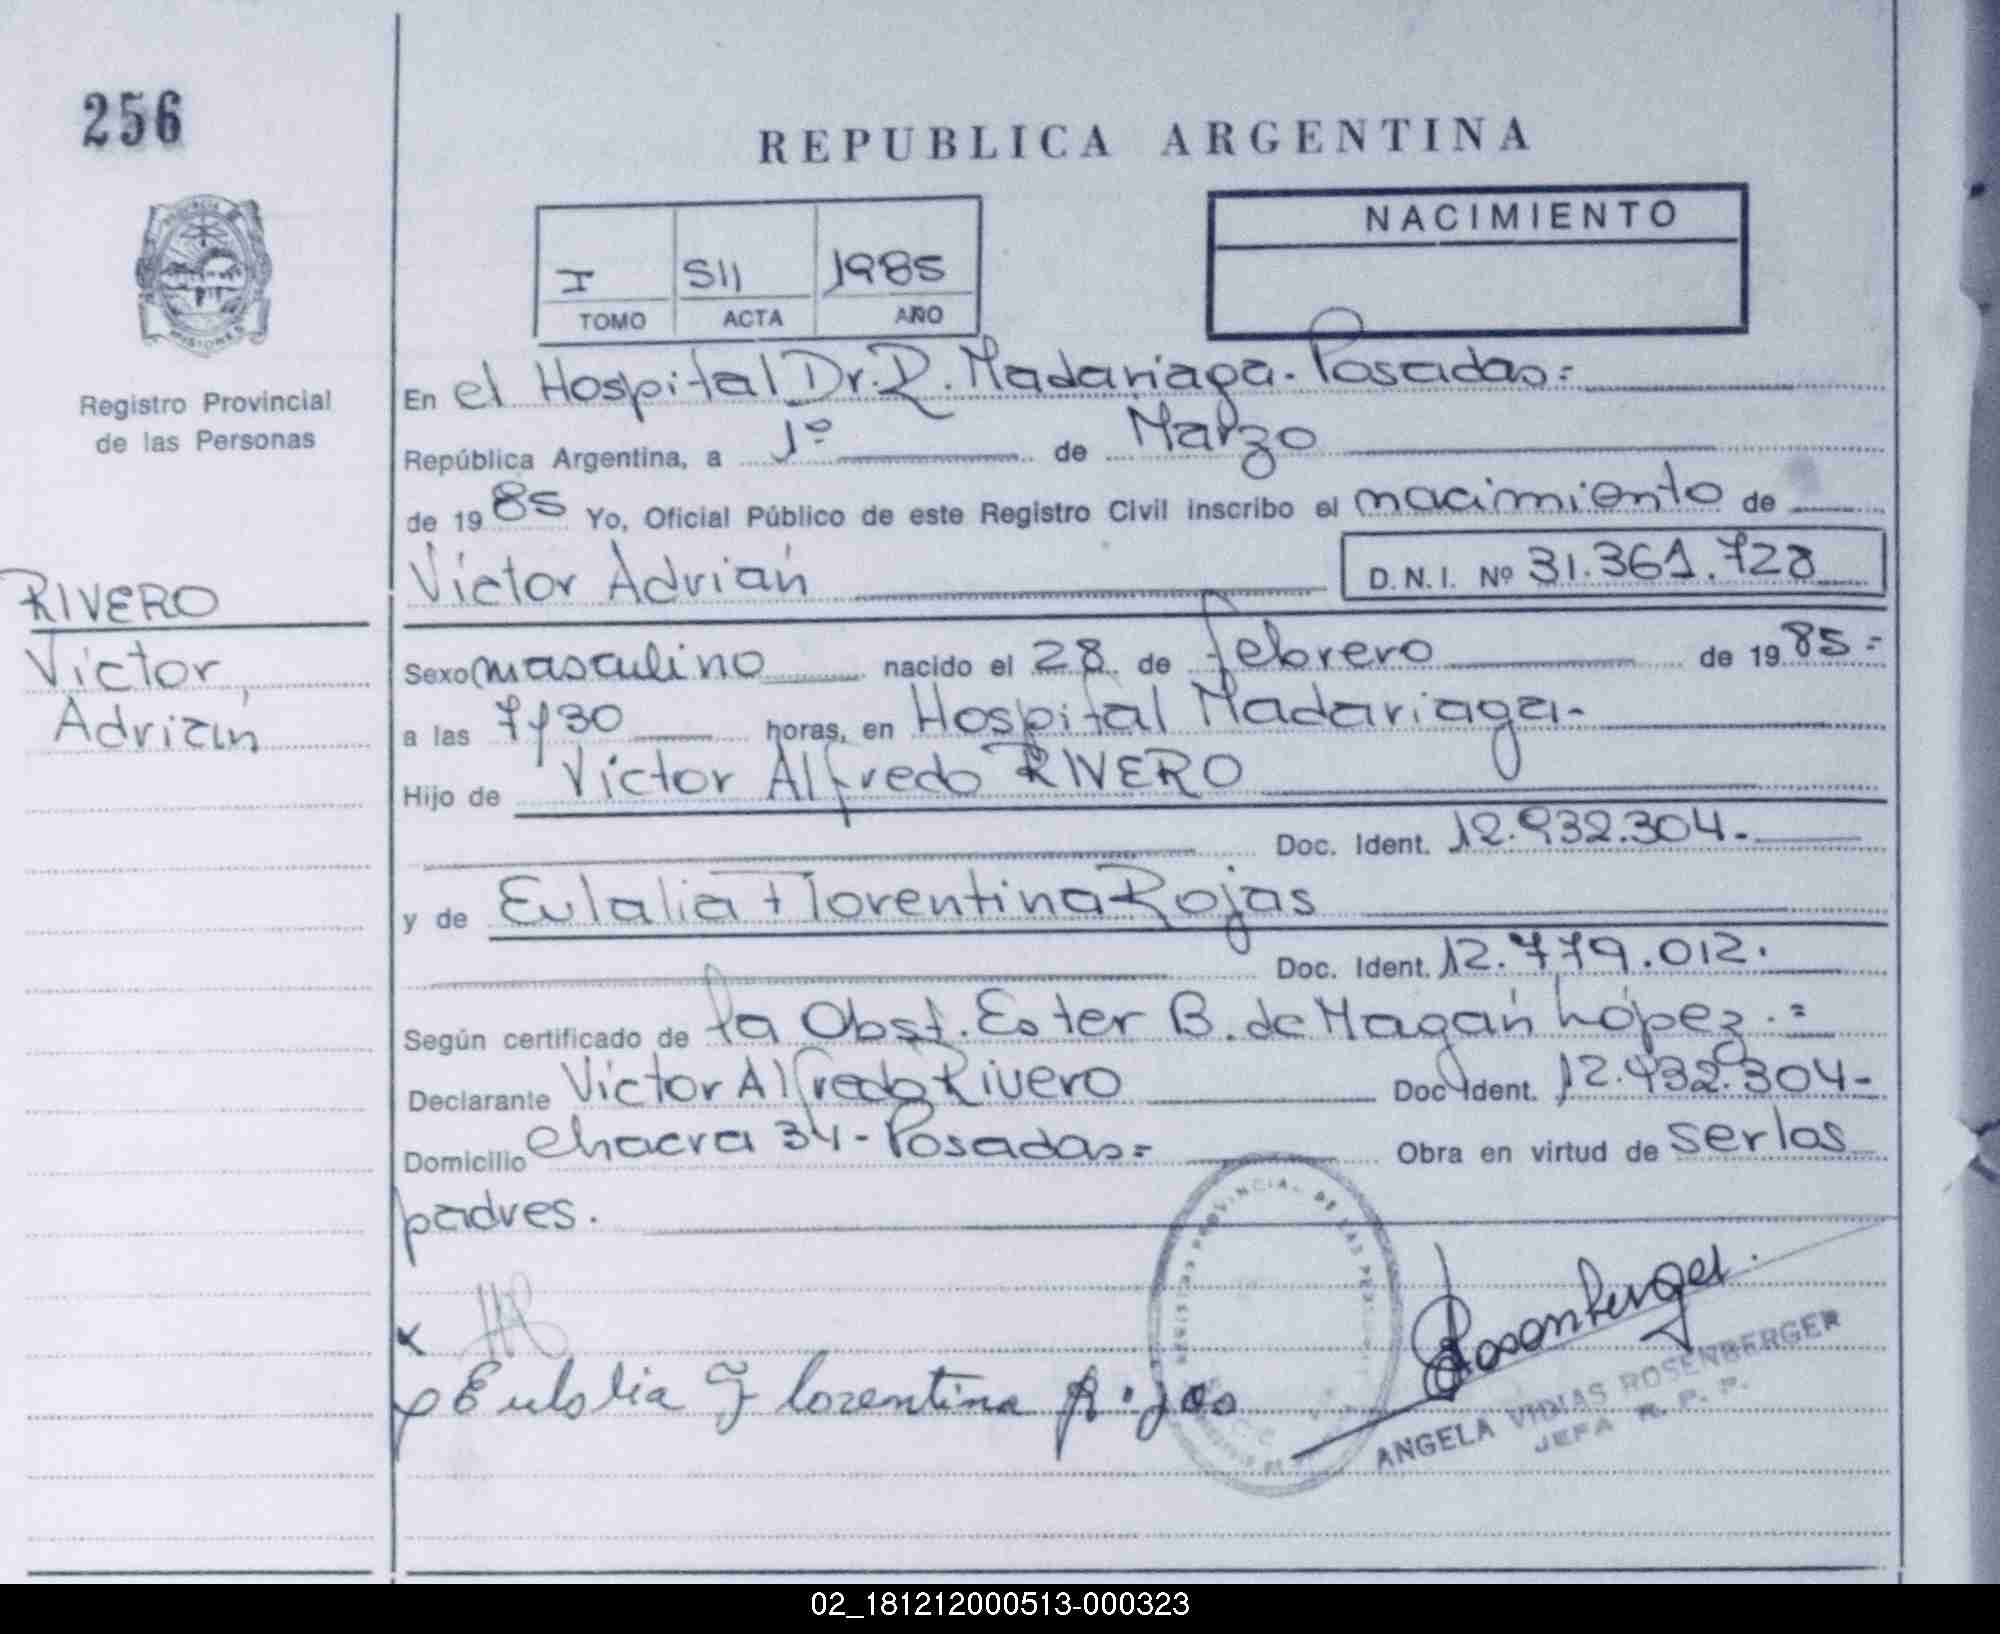 256
REPUBLICA ARGENTINA
PROVINCIA DE
MISIONES
I 511 1985
TOMO ACTA AÑO
NACIMIENTO
Registro Provincial
de las Personas
En el Hospital Dr. R. Madariaga. Posadas=
República Argentina, a 1º de Marzo
de 1985 Yo, Oficial Público de este Registro Civil inscribo el nacimiento de
Víctor Adrián D.N.I. Nº 31.361.728
RIVERO
Víctor
Adrián
Sexo masculino nacido el 28 de febrero de 1985.=
a las 7y30 horas, en Hospital Madariaga.-
Hijo de Víctor Alfredo RIVERO
Doc. Ident. 12.932.304.
y de Eulalia Florentina Rojas
Doc. Ident. 12.779.012.
Según certificado de la Obst. Ester B. de Magán López.=
Declarante Víctor Alfredo Rivero Doc. Ident. 12.932.304-
Domicilio Chacra 34- Posadas= Obra en virtud de ser los
padres.
PROVINCIAL DE LAS
Eulalia Florentina Rojas
Rosenberger
ANGELA VIDIAS ROSENBERGER
JEFA R. P. P.
02_181212000513-000323